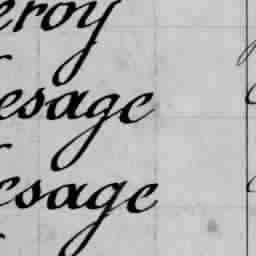 eroy
esage
esage